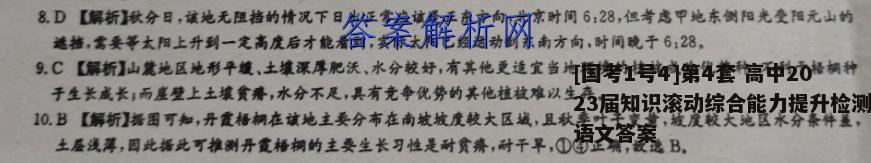 8. D 【解析】秋分日,该地无阻挡的情况下日出 正东方向 京时间 6:28,但考虑甲地东侧阳光受阳元山的
遮挡,需要等太阳上升到一定高度后才能看 东南方向,时间晚于 6:28。
9. C 【解析】山麓地区地形平缓、土壤深厚肥沃、水分较好,有其他更适宜当地 梧桐种
子生长成长;而崖壁上土壤贫瘠,水分不足,具有竞争优势的其他植被难以生存
10. B 【解析】据图可知,丹霞梧桐在该地主要分布在南坡坡度较大区域,且秋季叶子变黄,坡度较大地区水分条件差,
土层浅薄,因此据此可推测丹霞梧桐的主要生长习性是耐贫瘠,耐干旱,①④正确,故选 B。
答案解析网
[国考1号4]第4套 高中20
23届知识滚动综合能力提升检测
语文答案